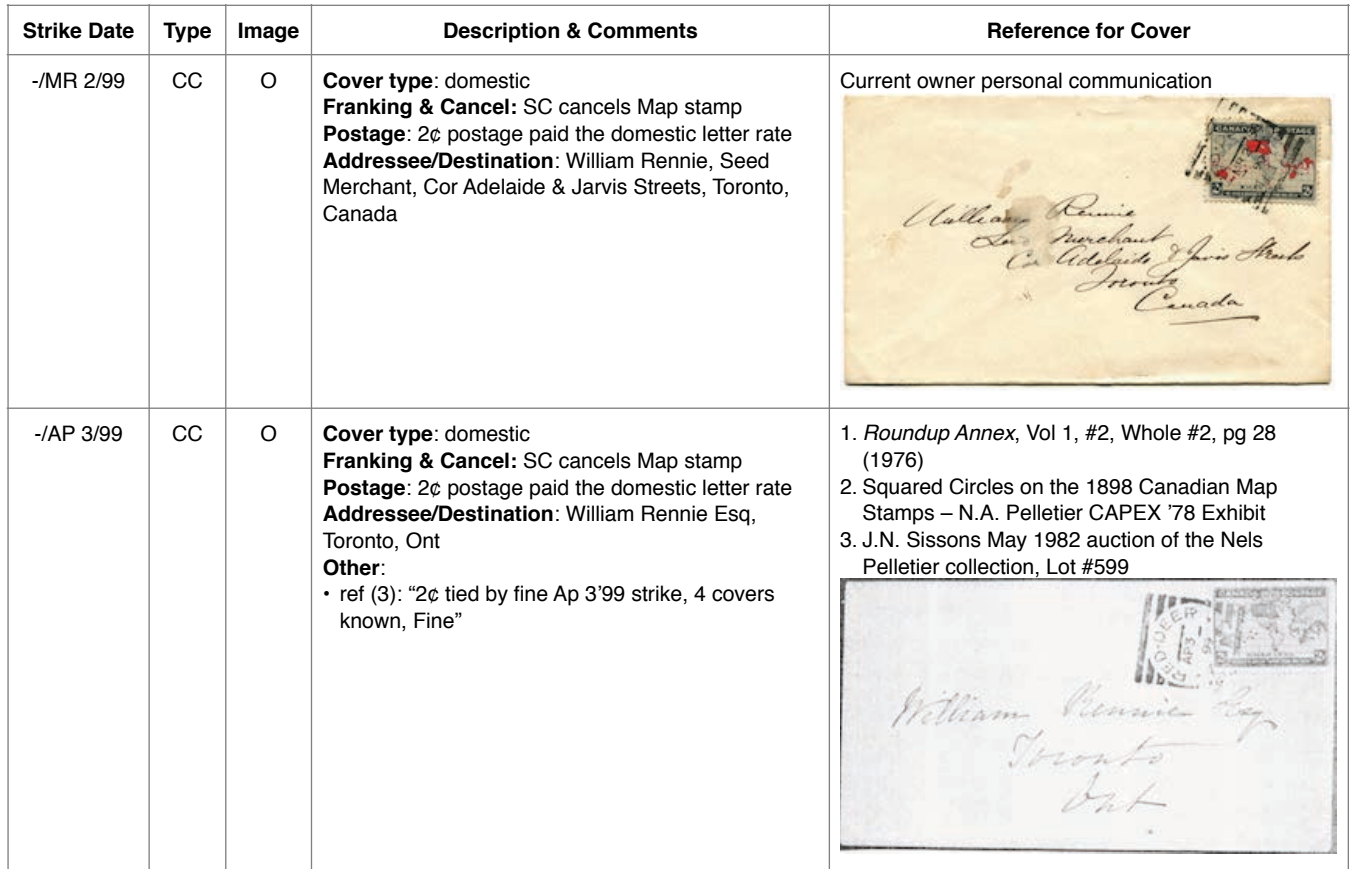 Strike Date Type Image Description & Comments Reference for Cover
-/MR 2/99 CC O
Cover type: domestic
Franking & Cancel: SC cancels Map stamp
Postage: 2¢ postage paid the domestic letter rate
Addressee/Destination: William Rennie, Seed
Merchant, Cor Adelaide & Jarvis Streets, Toronto,
Canada
Current owner personal communication
CANADA POSTAGE
William Rennie
Merchant
Cor Adelaide & Jarvis Streets
Toronto
Canada
-/AP 3/99 CC O
Cover type: domestic
Franking & Cancel: SC cancels Map stamp
Postage: 2¢ postage paid the domestic letter rate
Addressee/Destination: William Rennie Esq,
Toronto, Ont
Other:
• ref (3): “2¢ tied by fine Ap 3’99 strike, 4 covers
known, Fine”
1. Roundup Annex, Vol 1, #2, Whole #2, pg 28
(1976)
2. Squared Circles on the 1898 Canadian Map
Stamps – N.A. Pelletier CAPEX ’78 Exhibit
3. J.N. Sissons May 1982 auction of the Nels
Pelletier collection, Lot #599
RED DEER
AP 3
99
William Rennie Esq
Toronto
Ont